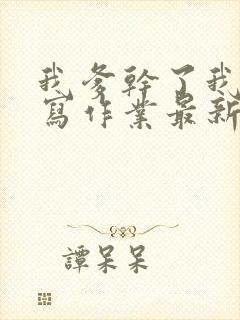 我爹幹了我
寫作業最新
譚呆呆